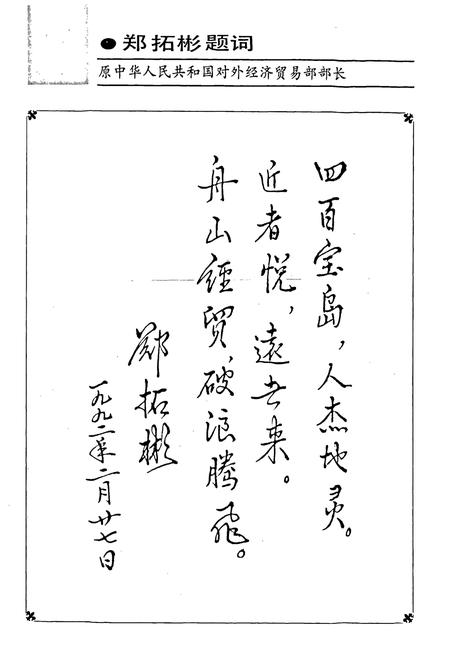 郑拓彬题词
原中华人民共和国对外经济贸易部部长
四百宝岛，人杰地灵。
近者悦，遠者来。
舟山経贸，破浪腾飛。
鄭拓彬
一九九二年二月廿七日